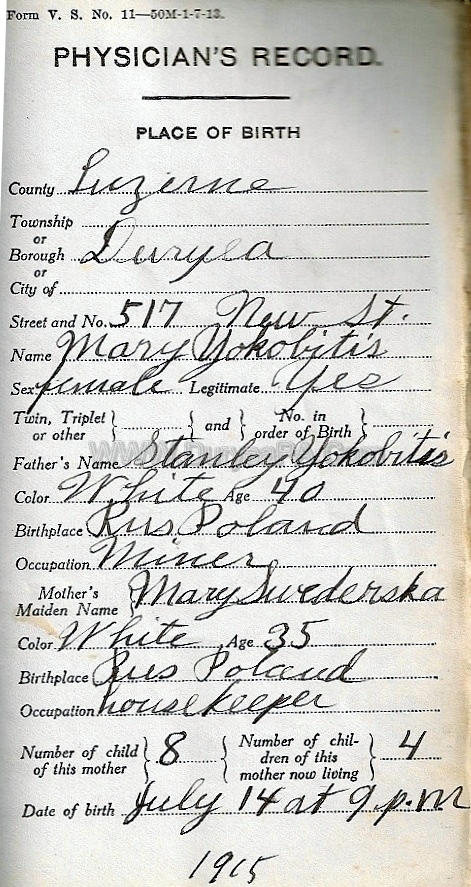 Form V. S. No. 11—50M-1-7-13.
PHYSICIAN'S RECORD.
PLACE OF BIRTH
County Luzerne
Township
or
Borough Duryea
or
City of
Street and No. 517 New St.
Name Mary Yokobitis
Sex female Legitimate Yes
Twin, Triplet or other } { and } No. in order of Birth {
Father's Name Stanley Yokobitis
Color White Age 40
Birthplace Rus Poland
Occupation Miner
Mother's Maiden Name } Mary Swederska
Color White Age 35
Birthplace Rus Poland
Occupation housekeeper
Number of child of this mother } 8 { Number of children of this mother now living } 4
Date of birth July 14 at 9 p.m
1915